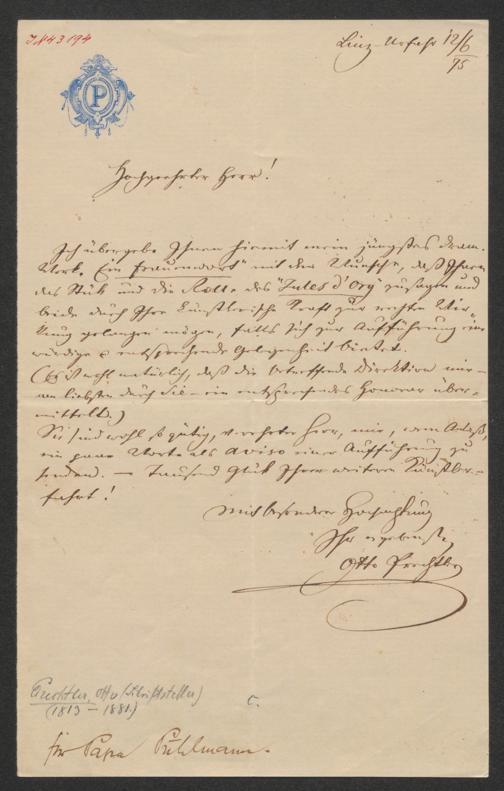 J.N 43194
Linz-Urfahr 12/6
75
P
Hochgeehrter Herr!
Ich übergebe Ihnen hiemit mein jüngstes dram.
Werk „Ein Frauenwort" mit dem Wunsche, daß Ihnen
das Stück und die Rolle des „Jules d'Ory" zusagen und
beide durch Ihre künstlerische Kraft zur rechten Wir-
kung gelangen mögen, falls sich zur Aufführung eine
würdige & entsprechende Gelegenheit bietet.
(Es ist wohl natürlich, daß die betreffende Direktion mir –
am liebsten durch Sie – ein entsprechendes Honorar über-
mittelt.)
Sie sind wohl so gütig, verehrter Herr, mir, vorm Anlaß,
ein paar Worte als aviso einer Aufführung zu
senden. – Tausend Glück Ihrer weiteren Künstler-
fahrt!
Mit besonderer Hochachtung
Ihr ergebenster
Otto Prechtler
Prechtler, Otto (Schriftsteller)
(1813 – 1881.)
C.
für Papa Pühlmann.